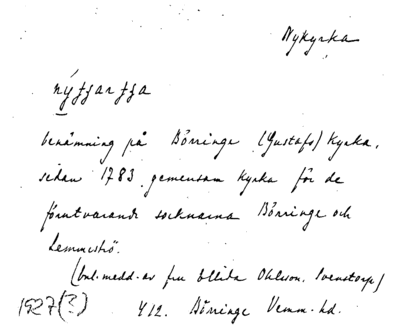 Nykyrka
benämning på Börringe (Gustafs) kyrka,
sedan 1783 gemensam kyrka för de
förutvarande socknarna Börringe och
Lemmeströ.
(enl. medd. av fru Ellida Ohlsson, Svenstorp)
1927(?) 412. Börringe Vemm. hd.